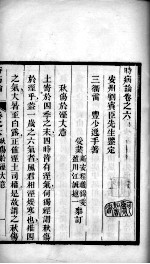 時病論卷之六
安州劉賓臣先生鑒定
三衢雷 豐少逸手著
受業 新安程曦錦雯
盈川江誠抱一 參訂
秋傷於溼大意
土寄於四季之末四時皆有溼氣何獨經謂秋傷
於溼乎蓋一歲之六氣者風君相溼燥寒也推四
之氣大暑至白露正值溼土司權是故謂之秋傷